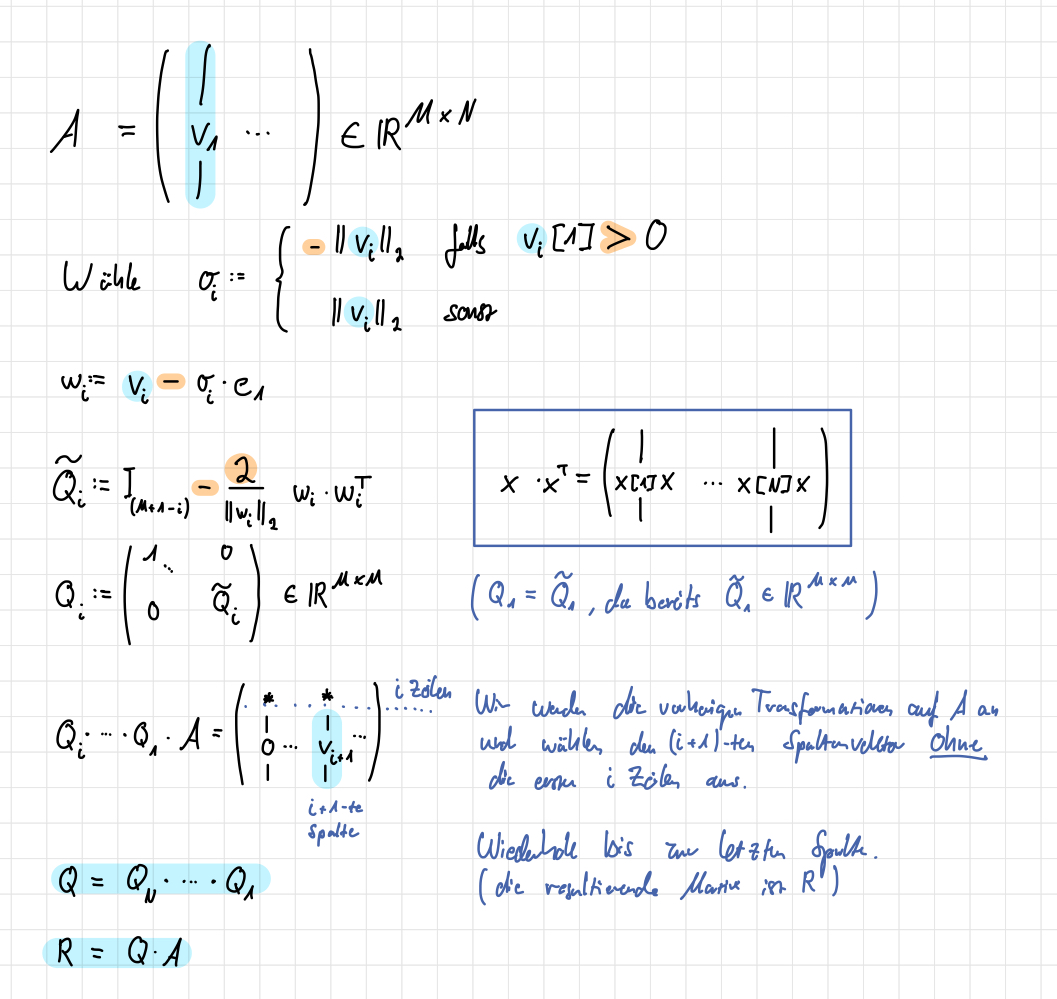 A = ( | v₁ | ... ) ∈ ℝ^{M×N}
Wähle σᵢ := { - ||vᵢ||₂ falls vᵢ[1] > 0
||vᵢ||₂ sonst
wᵢ := vᵢ - σᵢ · e₁
Q̃ᵢ := I_{(M+1-i)} - 2/||wᵢ||₂ wᵢ · wᵢᵀ
x · xᵀ = ( x[1]x ... x[N]x )
Qᵢ := ( 1 ⋱ 0 0 Q̃ᵢ ) ∈ ℝ^{M×M}
(Q₁ = Q̃₁, da bereits Q̃₁ ∈ ℝ^{M×M})
Qᵢ · ... · Q₁ · A = ( * * | 0 | ... | vᵢ₊₁ | ... ) i Zeilen
i+1-te
Spalte
Wir wenden die vorherigen Transformationen auf A an
und wählen den (i+1)-ten Spaltenvektor ohne
die ersten i Zeilen aus.
Wiederhole bis zur letzten Spalte.
(die resultierende Matrix ist R)
Q = Q_N · ... · Q₁
R = Q · A